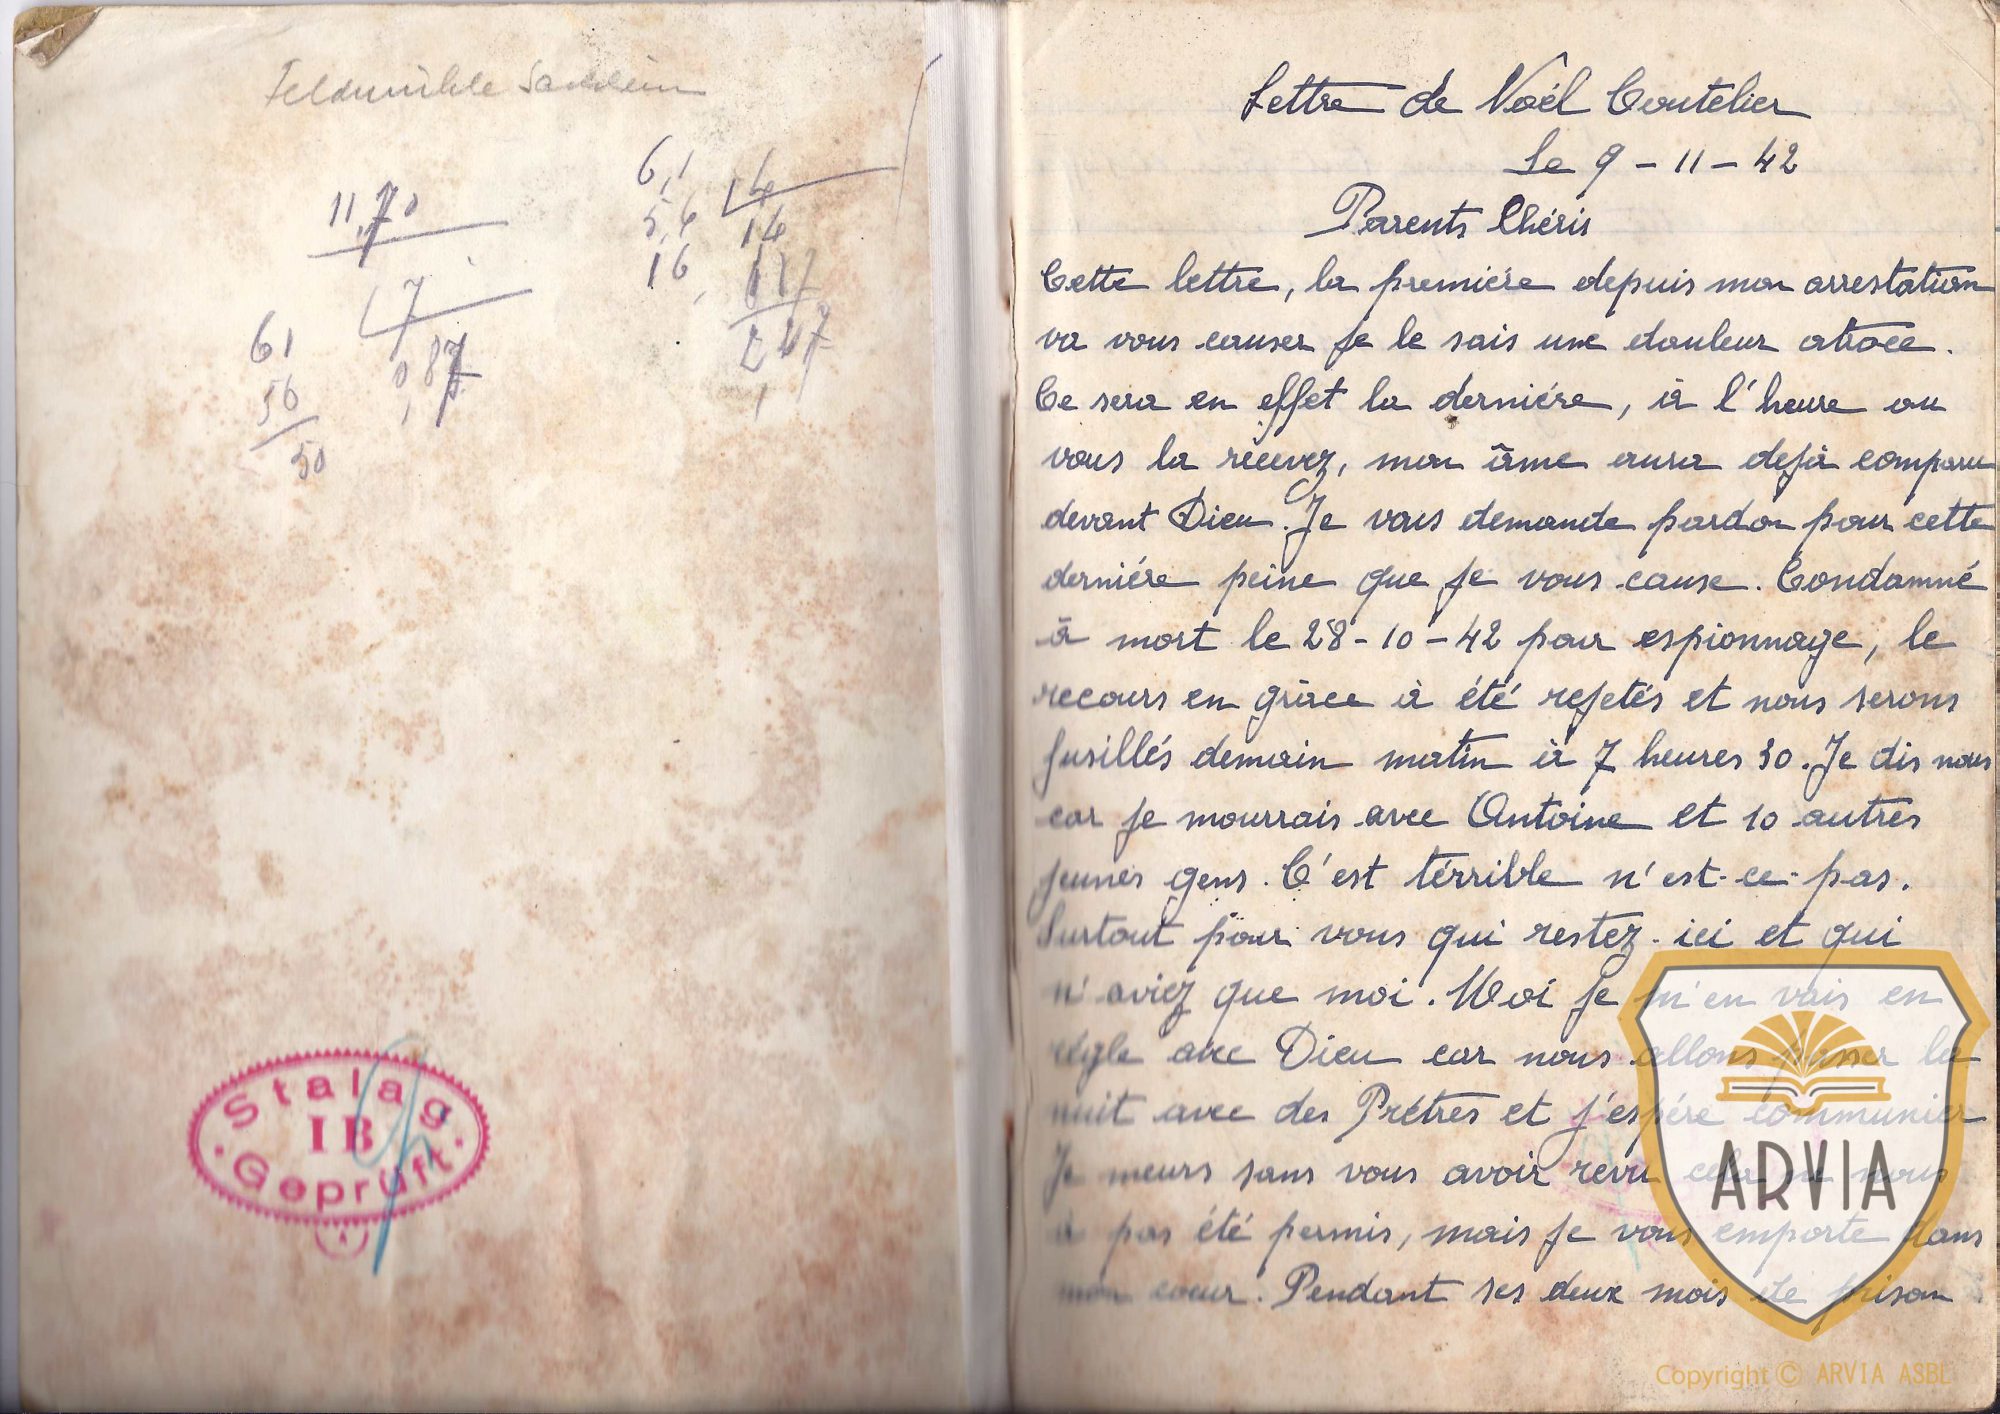 Feldmühle
11,70
17
0,87
61
56
50
6,1
5,6
16
14
14
117
247
1
Stalag
IB
Geprüft
Lettre de Noël Coutelier
Le 9 - 11 - 42
Parents Chéris
Cette lettre, la premiére depuis mon arrestation
va vous causer je le sais une douleur atroce.
Ce sera en effet la derniére, à l'heure ou
vous la recevez, mon âme aura dejà comparu
devant Dieu. Je vous demande pardon pour cette
derniére peine que je vous cause. Condamné
à mort le 28-10-42 pour espionnage, le
recours en grâce à été rejetés et nous serons
fusillés demain matin à 7 heures 30. Je dis nous
car je mourrais avec Antoine et 10 autres
jeunes gens. C'est térrible n'est-ce-pas.
Surtout pour vous qui restez ici et qui
n'aviez que moi. Moi je m'en vais en
régle avec Dieu car nous allons passer la
nuit avec des Prétres et j'espére communier
Je meurs sans vous avoir revu cela ne nous
à pas été permis, mais je vous emporte dans
mon coeur. Pendant ses deux mois de prison
ARVIA
Copyright © ARVIA ASBL